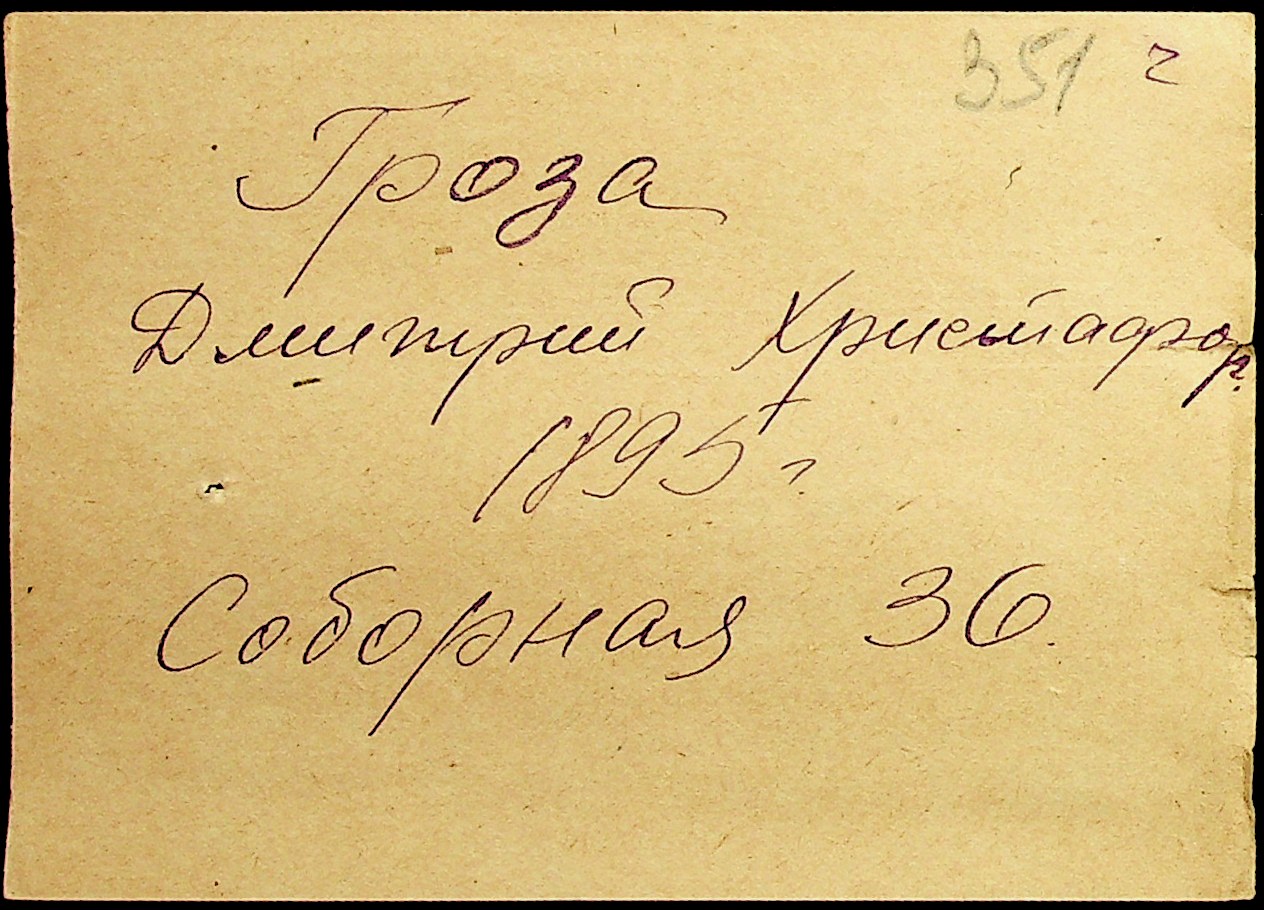 351 г
Гроза
Дмитрий Христафор.
1895 г
Соборная 36.